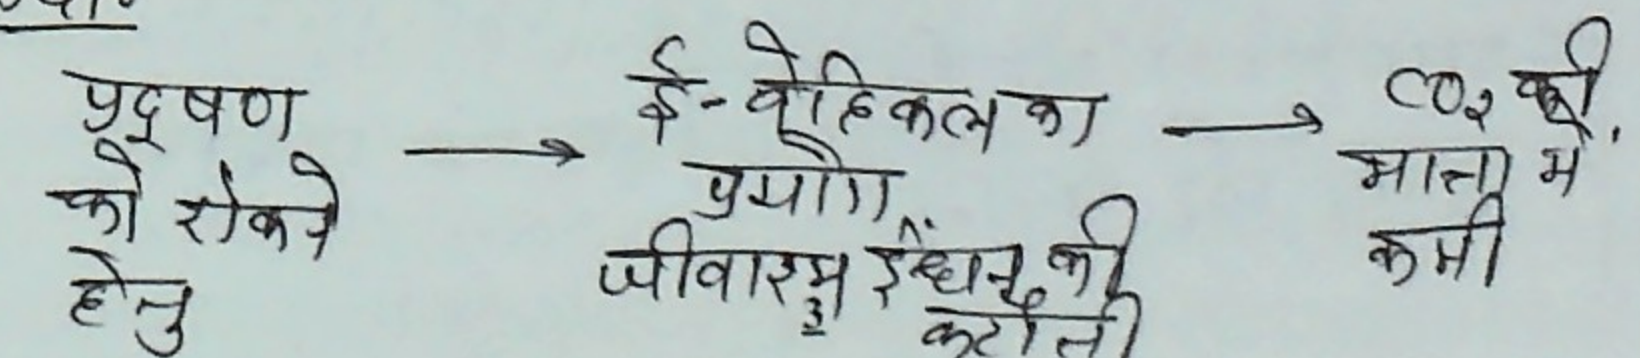 प्रदूषण
को रोकने
हेतु
→ ई-वेहिकल का
प्रयोग,
जीवाश्म ईंधन की
कटौती
→ CO₂ की
मात्रा में
कमी